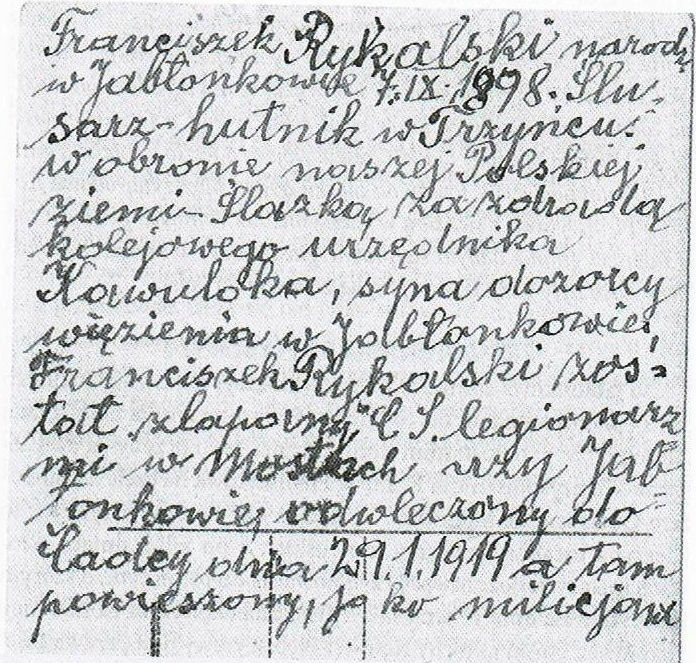 Franciszek Rykalski narodz
w Jabłonkowie 7.IX.1898. Ślu-
sarz-hutnik w Trzyńcu.
w obronie naszej Polskiej
ziemi-Ślazką za zdradą
kolejowego urzędnika
Kawuloka, syna dozorcy
więzienia w Jabłonkowie,
Franciszek Rykalski zos=
tał złapany C S. legionarz
mi w Mostach przy Jab
łonkowie, odwleczony do
Czadcy dnia 29.1.1919 a tam
powieszony, jako milicjant